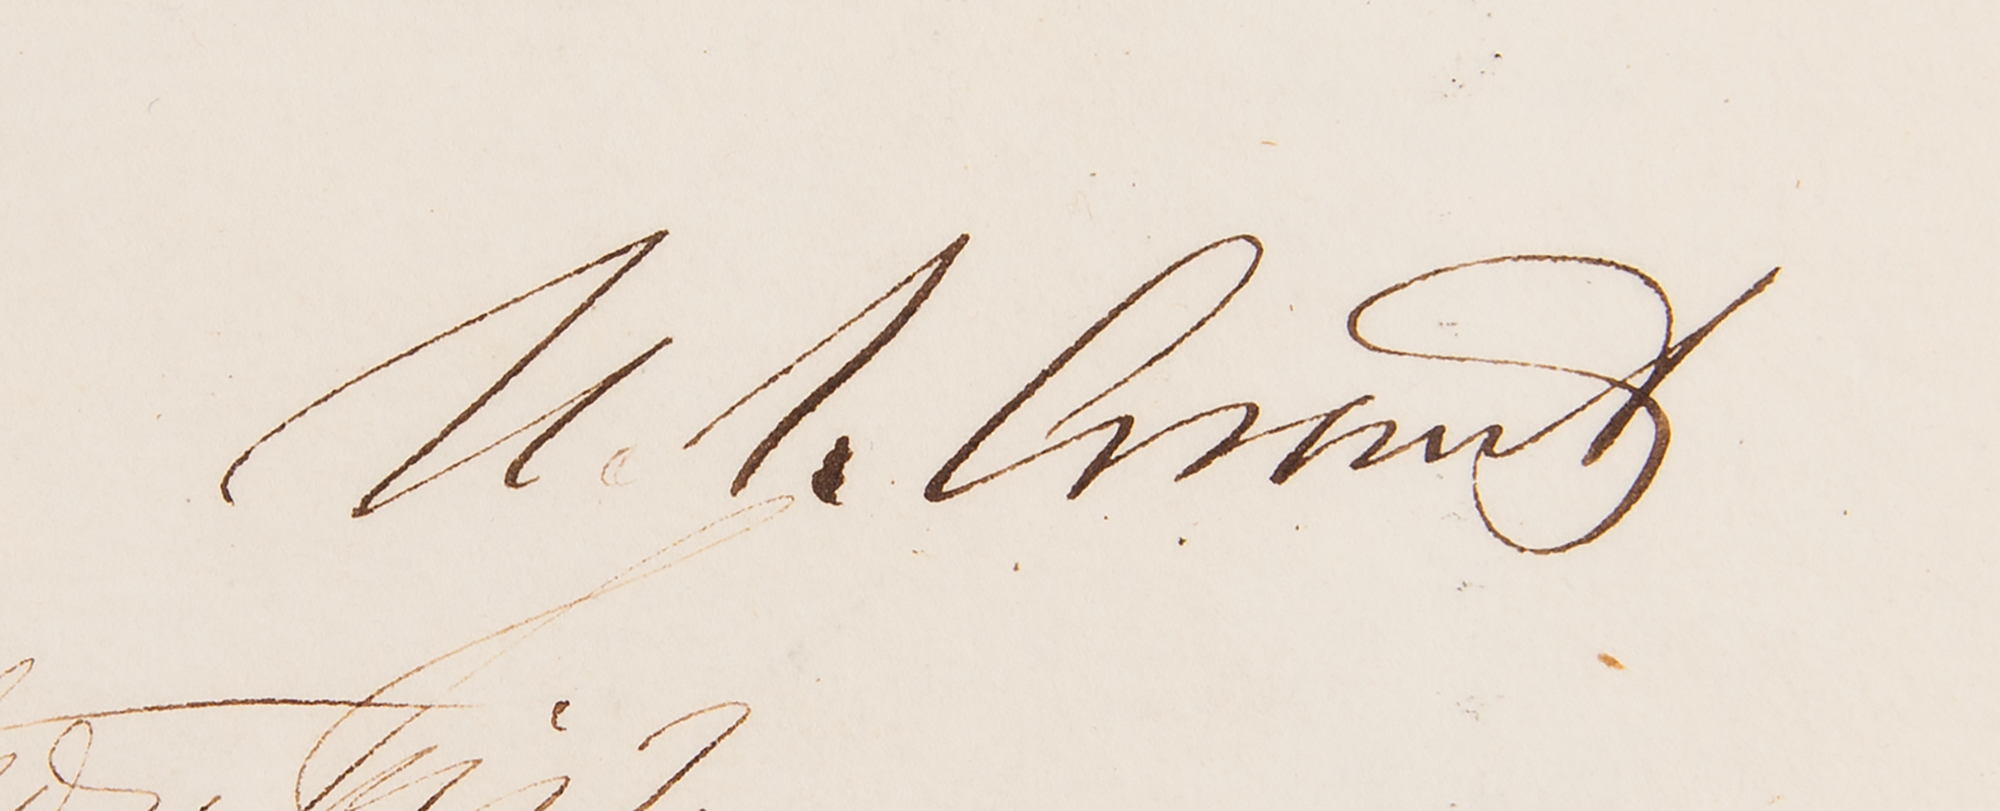 U. S. Grant